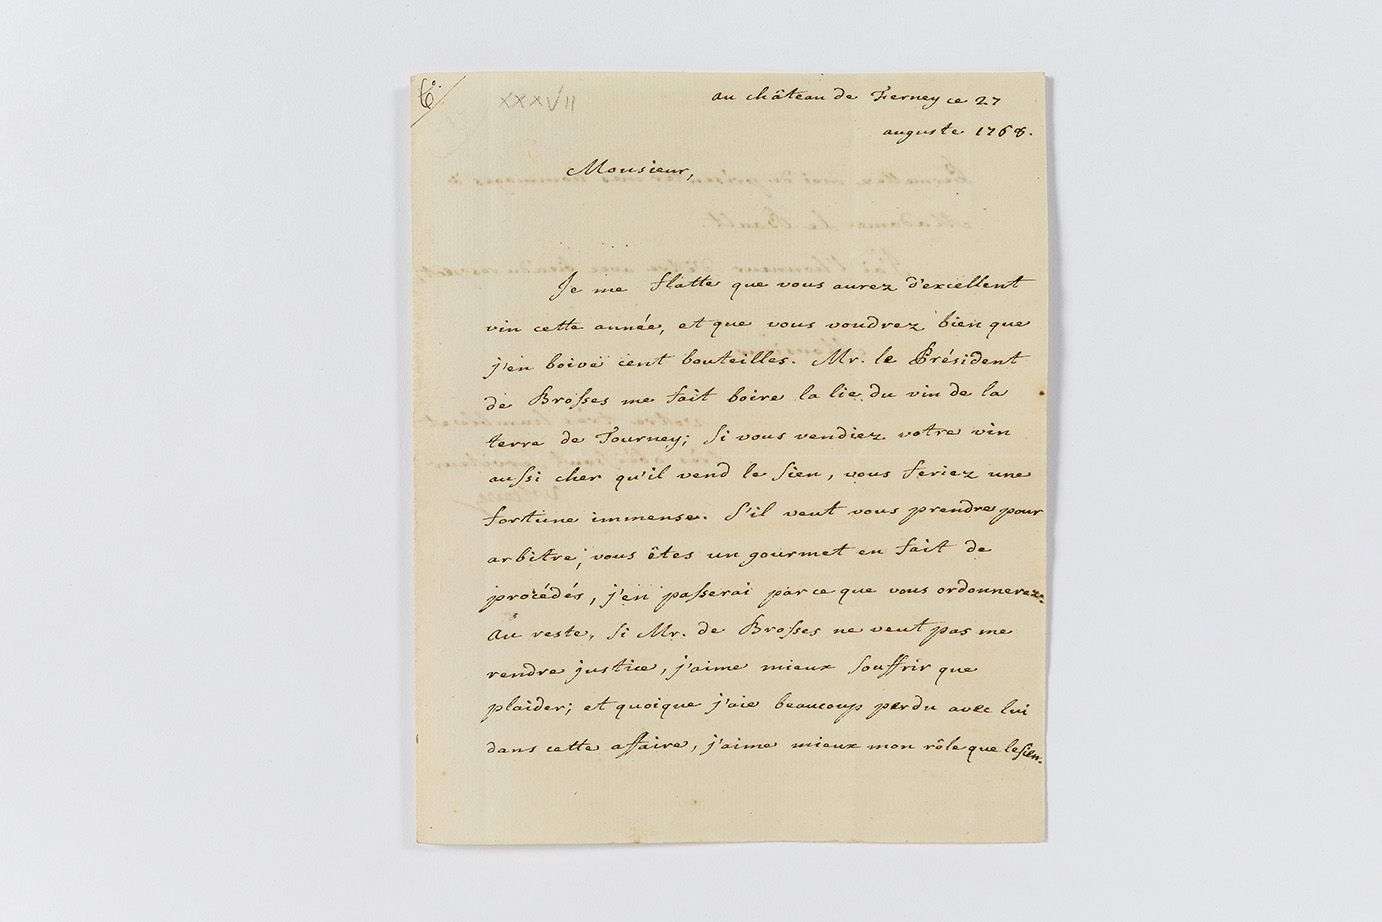 6.°
XXXVII
au château de Ferney ce 27
auguste 1768.
Monsieur,
Je me flatte que vous aurez d'excellent
vin cette année, et que vous voudrez bien que
j'en boive cent bouteilles. Mr. le Président
de Brosses me fait boire la lie du vin de la
terre de Tourney; si vous vendiez votre vin
aussi cher qu'il vend le sien, vous feriez une
fortune immense. S'il veut vous prendre pour
arbitre, vous êtes un gourmet en fait de
procédés, j'en passerai par ce que vous ordonnerez.
Au reste, si Mr. de Brosses ne veut pas me
rendre justice, j'aime mieux souffrir que
plaider; et quoique j'aie beaucoup perdu avec lui
dans cette affaire, j'aime mieux mon rôle que le sien.